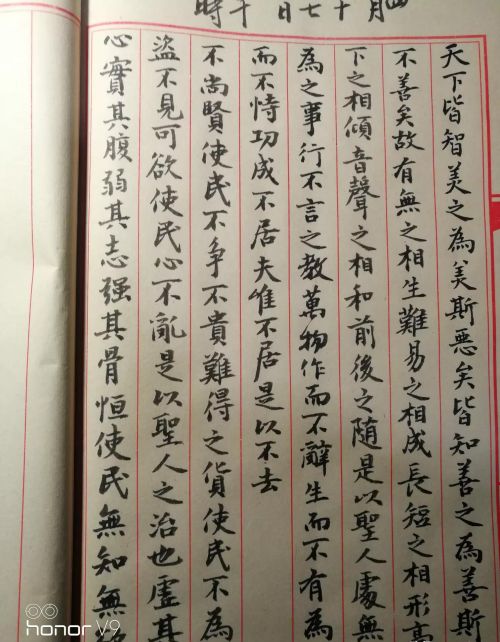 四月十七日 時
天下皆智美之為美斯惡矣皆知善之為善斯
不善矣故有無之相生難易之相成長短之相形高
下之相傾音聲之相和前後之隨是以聖人處無
為之事行不言之教萬物作而不辭生而不有為
而不恃功成不居夫唯不居是以不去
不尚賢使民不争不貴難得之貨使民不為
盜不見可欲使民心不亂是以聖人之治也虛其
心實其腹弱其志强其骨恒使民無知無
honor V9